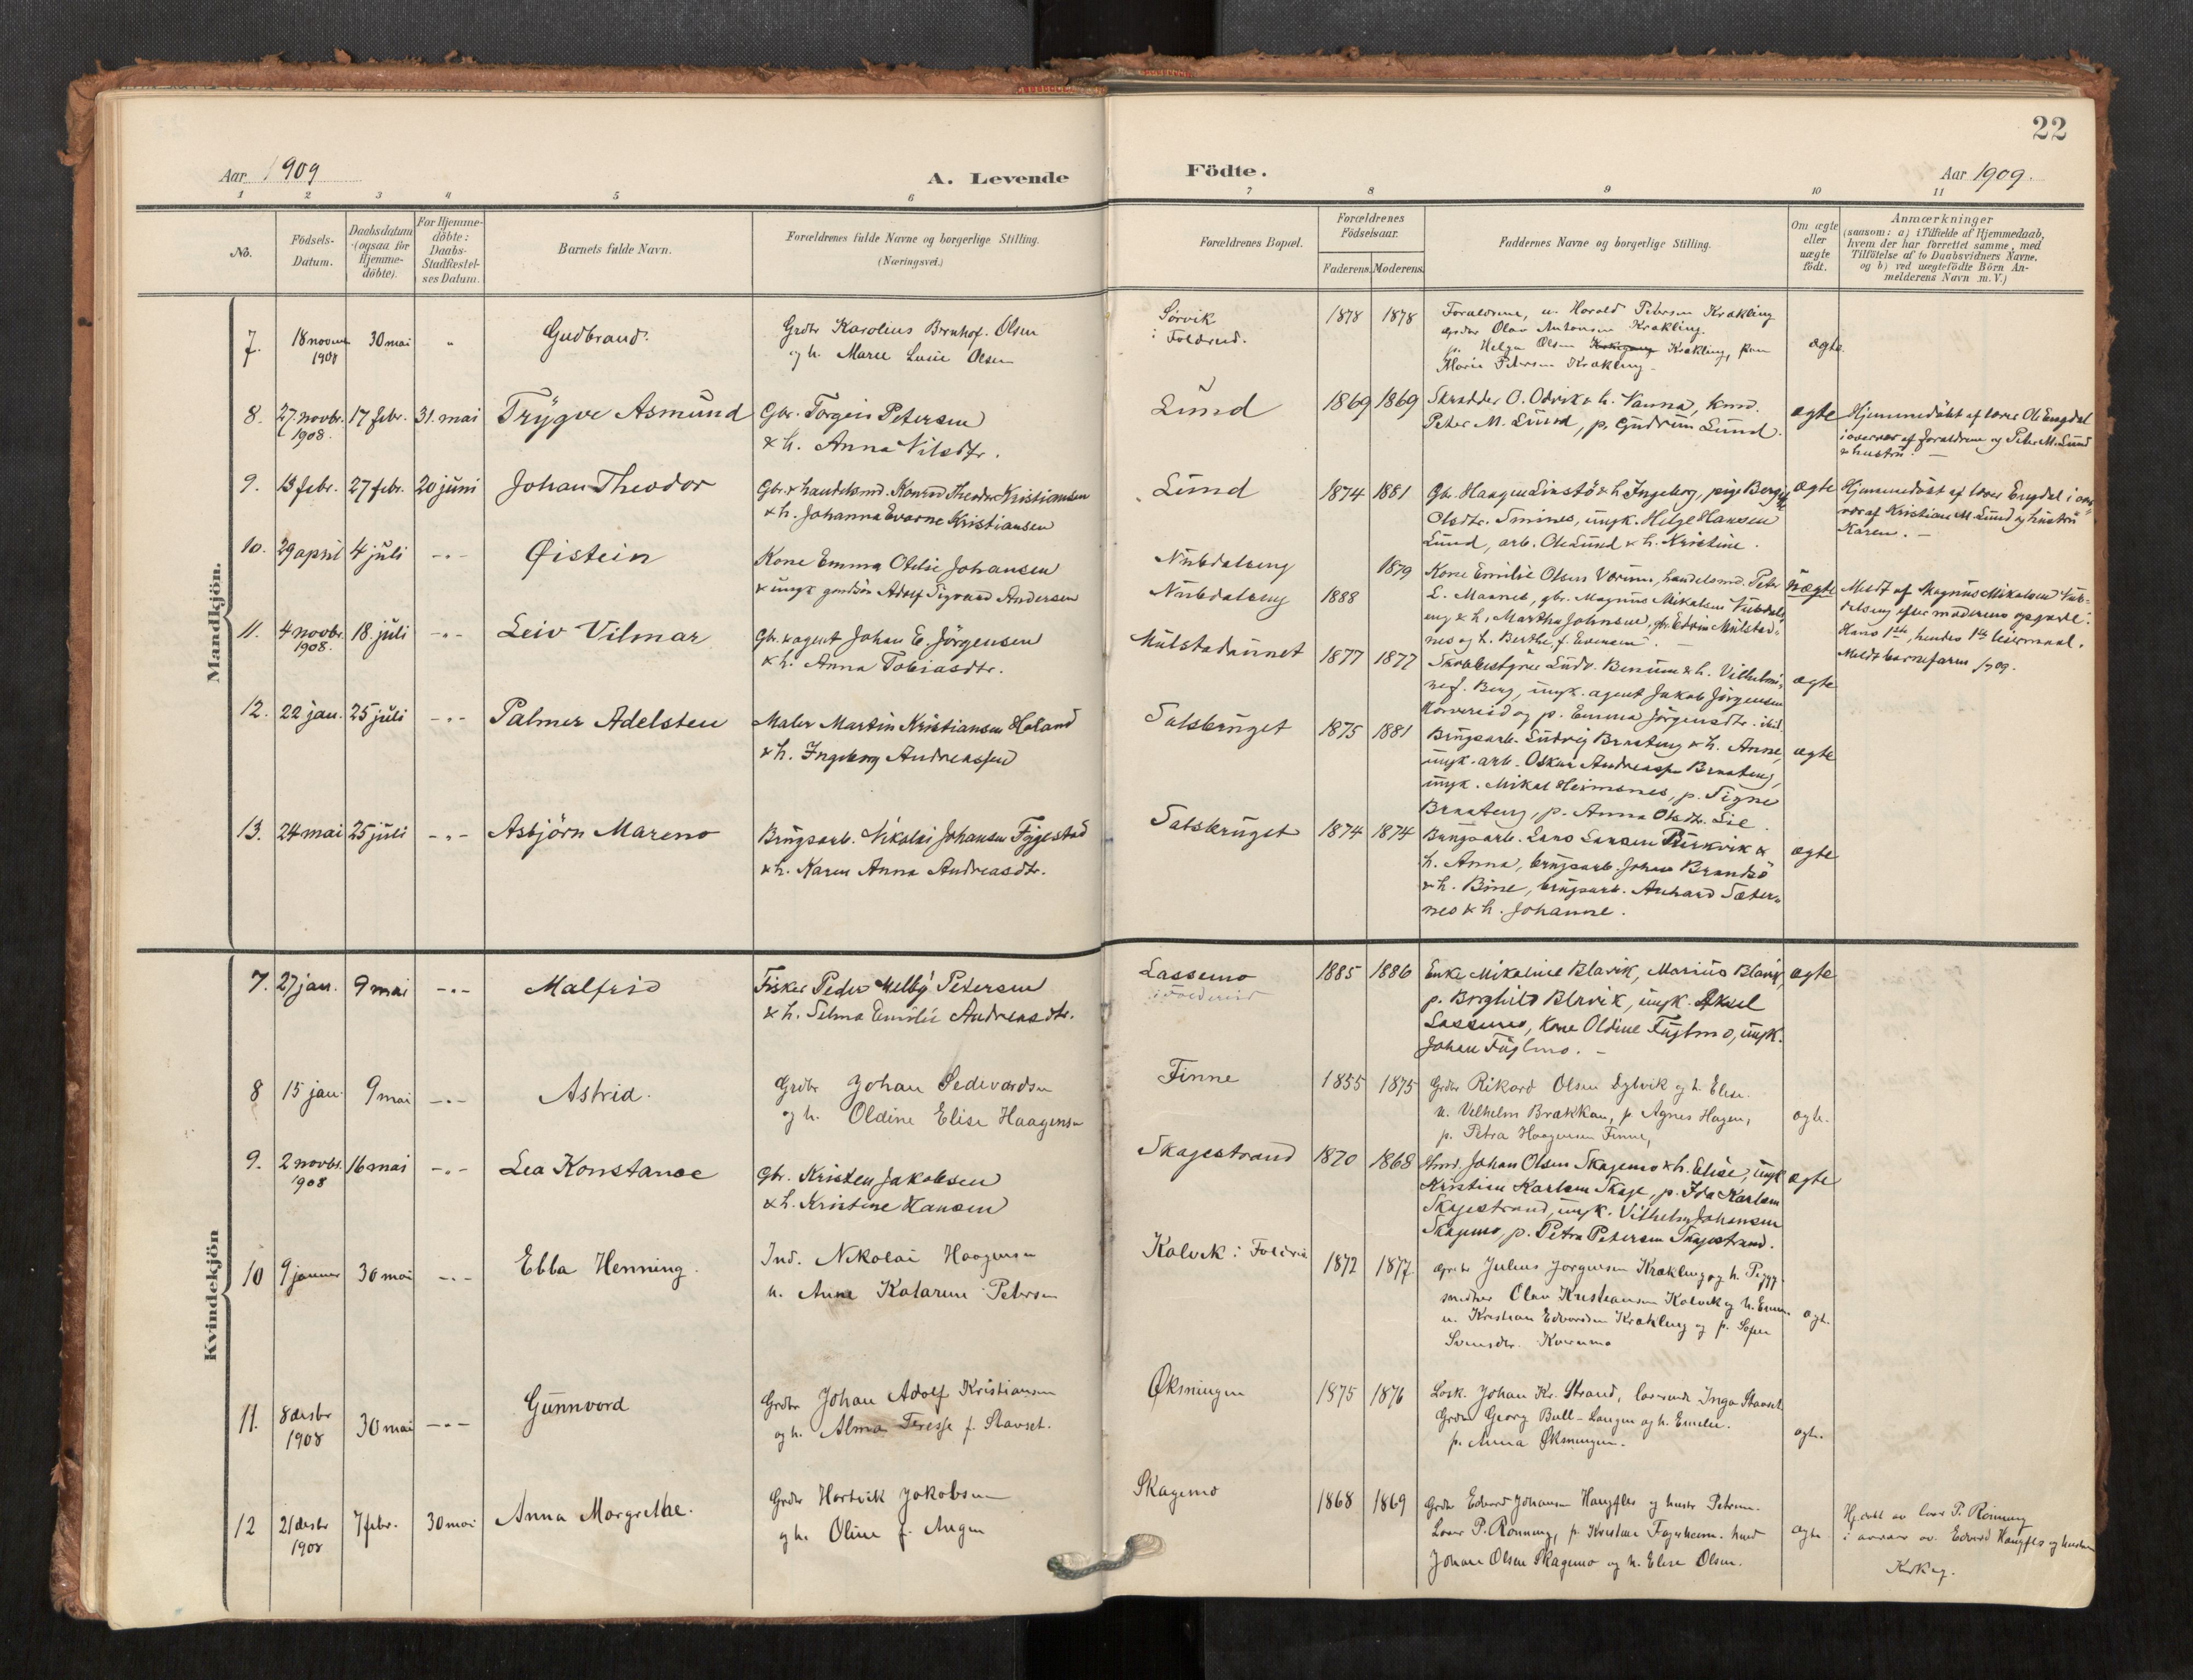 22
Aar 1909
A. Levende
Födte.
Aar 1909.
1 2 3 4 5 6 7 8 9 10 11
No.
Födsels-
Datum.
Daabsdatum
(ogsaa for
Hjemme-
döbte).
For Hjemme-
döbte:
Daabs-
Stadfæstel-
ses Datum.
Barnets fulde Navn.
Forældrenes fulde Navne og borgerlige Stilling.
(Næringsvei.)
Forældrenes Bopæl.
Forældrenes
Födselsaar.
Faderens. Moderens.
Faddernes Navne og borgerlige Stilling.
Om ægte
eller
uægte
födt.
Anmærkninger
(saasom: a) i Tilfælde af Hjemmedaab,
hvem der har forrettet samme, med
Tilföielse af to Daabsvidners Navne.
og b) ved uægtefödte Börn An-
melderens Navn m. V.)
Mandkjön.
7. 18 novem 1908 30 mai " Gudbrand.
Grdbr Karolius Olsen
og h. Marie Lusie Olsen
Sörvik
i Foldereid.
1878 1878
Forældrene, u. Harald Petersen Krækling
Olav Antonsen Krækling.
p. Helga Olsen Krækling,
Marie Petersen Krækling
ægte.
8. 27 novbr. 1908. 17 febr. 31. mai Trygve Asmund
Gbr. Torgeir Petersen
& h. Anna Nilsdtr.
Lund
1869 1869
Skrædder O. Odvik & h. Vanna, kmd.
Peter M. Lund, p. Gudrun Lund.
ægte
Hjemmedöbt af lærer Ole Engdal
i overvær af forældrene og Peter M. Lund
& hustru. —
9. 13 febr. 27 febr. 20 juni Johan Theodor
Gbr. & handelsmd. Konrad Theodor Kristiansen
& h. Johanna Evarne Kristiansen
Lund
1874 1881
Gbr. Haagen Linstö & h. Ingeborg, pige
Olsdtr. Smines, ungk. Helge Hansen
Lund, arb. Ole Lund & h. Kristine.
ægte
Hjemmedöbt af lærer Engdal i over
vær af Kristian M. Lund og hustru
Karen. —
10. 29 april 4 juli -"- Øistein
Kone Emma Otelie Johansen
& ungk gaardsön Adolf Sigvard Andersen
Nubdalseng
Nubdalseng
1888 1879
Kone Emilie Olsen Værum, handelsmd. Peter
L. Maanes, gbr. Magnus Mikalsen Nubdals
eng & h. Martha Johnsen, gbr. Edvin Mulstad-
nes og h. Berthe f. Evensen. —
uægte
Meldt af Magnus Mikalsen Nub-
dalseng efter moderens opgave.
Hans 1ste, hendes 1ste leiermaal.
Meldt barnefaren 1909.
11. 4 novbr. 1908. 18. juli -"- Leiv Vilmar
Gbr. & agent Johan E. Jörgensen
& h. Anna Tobiasdtr.
Mulstadaunet
1877 1877
Ludv. Benum & h. Vilhelmi-
ne f. Berg, ungk. agent Jakob Jörgensen
Korvereid og p. Emma Jörgensdtr. ibid.
ægte
12. 22 jan. 25 juli -"- Palmer Adelsten
Maler Martin Kristiansen Høland
& h. Ingeborg Andreassen
Salsbruget
1875 1881
Brugsarb. Ludvig Braateng & h. Anne,
ungk. arb. Oskar Andreassen Braateng,
ungk. Mikal Heimsnes, p. Signe
Braateng, p. Anna Olsdtr. Lie.
ægte
13. 24 mai 25 juli -"- Asbjörn Mareno
Brugsarb. Nikolai Johansen Fygjestad
& h. Karen Anna Andreasdtr.
Salsbruget
1874 1874
Brugsarb. Lars Larsen Birkvik &
h. Anna, brugsarb. Johan Brandsö
& h. Bine, brugsarb. Anhard Sæter-
nes & h. Johanne.
ægte
Kvindekjön
7. 27 jan. 9 mai -"- Malfrid
Fisker Peder Melby Petersen
& h. Selma Emilie Andreasdtr.
Lassemo
i Foldereid
1885 1886
Enke Mikaline Blavik, Marius Blavik,
p. Borghild Blavik, ungk. Aksel
Lassemo, kone Oldine Fuglmo, ungk.
Johan Fuglmo. —
ægte
8 15 jan. 9 mai -"- Astrid.
Grdbr Johan Sedevardsen
og h. Oldine Elise Haagensen
Finne
1855 1875
Grdbr Rikard Olsen og h. Elise.
u. Vilhelm Brækkan, p. Agnes Hagen,
p. Petra Haagensen Finne,
ægte.
9. 2 novbr. 1908 16 mai -"- Lea Konstanse
Gbr. Kristen Jakobsen
& h. Kristine Hansen
Skagestrand
1870 1868
Johan Olsen Skagemo & h. Elise, ungk
Kristian Karlsen Skage, p. Ida Karlsen
Skagestrand, ungk. Vilhelm Johansen
Skagemo, p. Petra Petersen Skagestrand.
ægte
10 9 januar 30 mai -"- Ebba Henning.
Ind. Nikolai Haagensen
h. Anna Katarine Petersen
Kalvik i Foldereid
1872 1877
Julius Jörgensen Krækling og h. Pegg
Olav Kristiansen Kalvik og h. Emm.
u. Kristian Edvardsen Krækling og p. Sofie
ægt.
11. 8 desbr 1908 30 mai -"- Gunnvord
Grdbr Johan Adolf Kristiansen
og h. Alma Teresse f. Stavset.
Øksningen
1875 1876
Johan Kr. Strand, lærerinde Inga Stavset
Grdbr Georg Bull-Langen og h. Emelie.
p. Anna Øksningen.
ægte.
12 21 desbr 1908 7 febr. 30 mai Anna Margrethe.
Grdbr Hartvik Jakobsen
og h. Oline f.
Skagemo
1868 1869
Grdbr Edvard Johansen og hustr Petrine.
Lærer P. Rönning, p. Kristine Fagerheim.
Johan Olsen Skagemo og h. Elise Olsen.
ægte
Hj.döbt av lærer P. Rönning
i overvær av Edvard og hustru